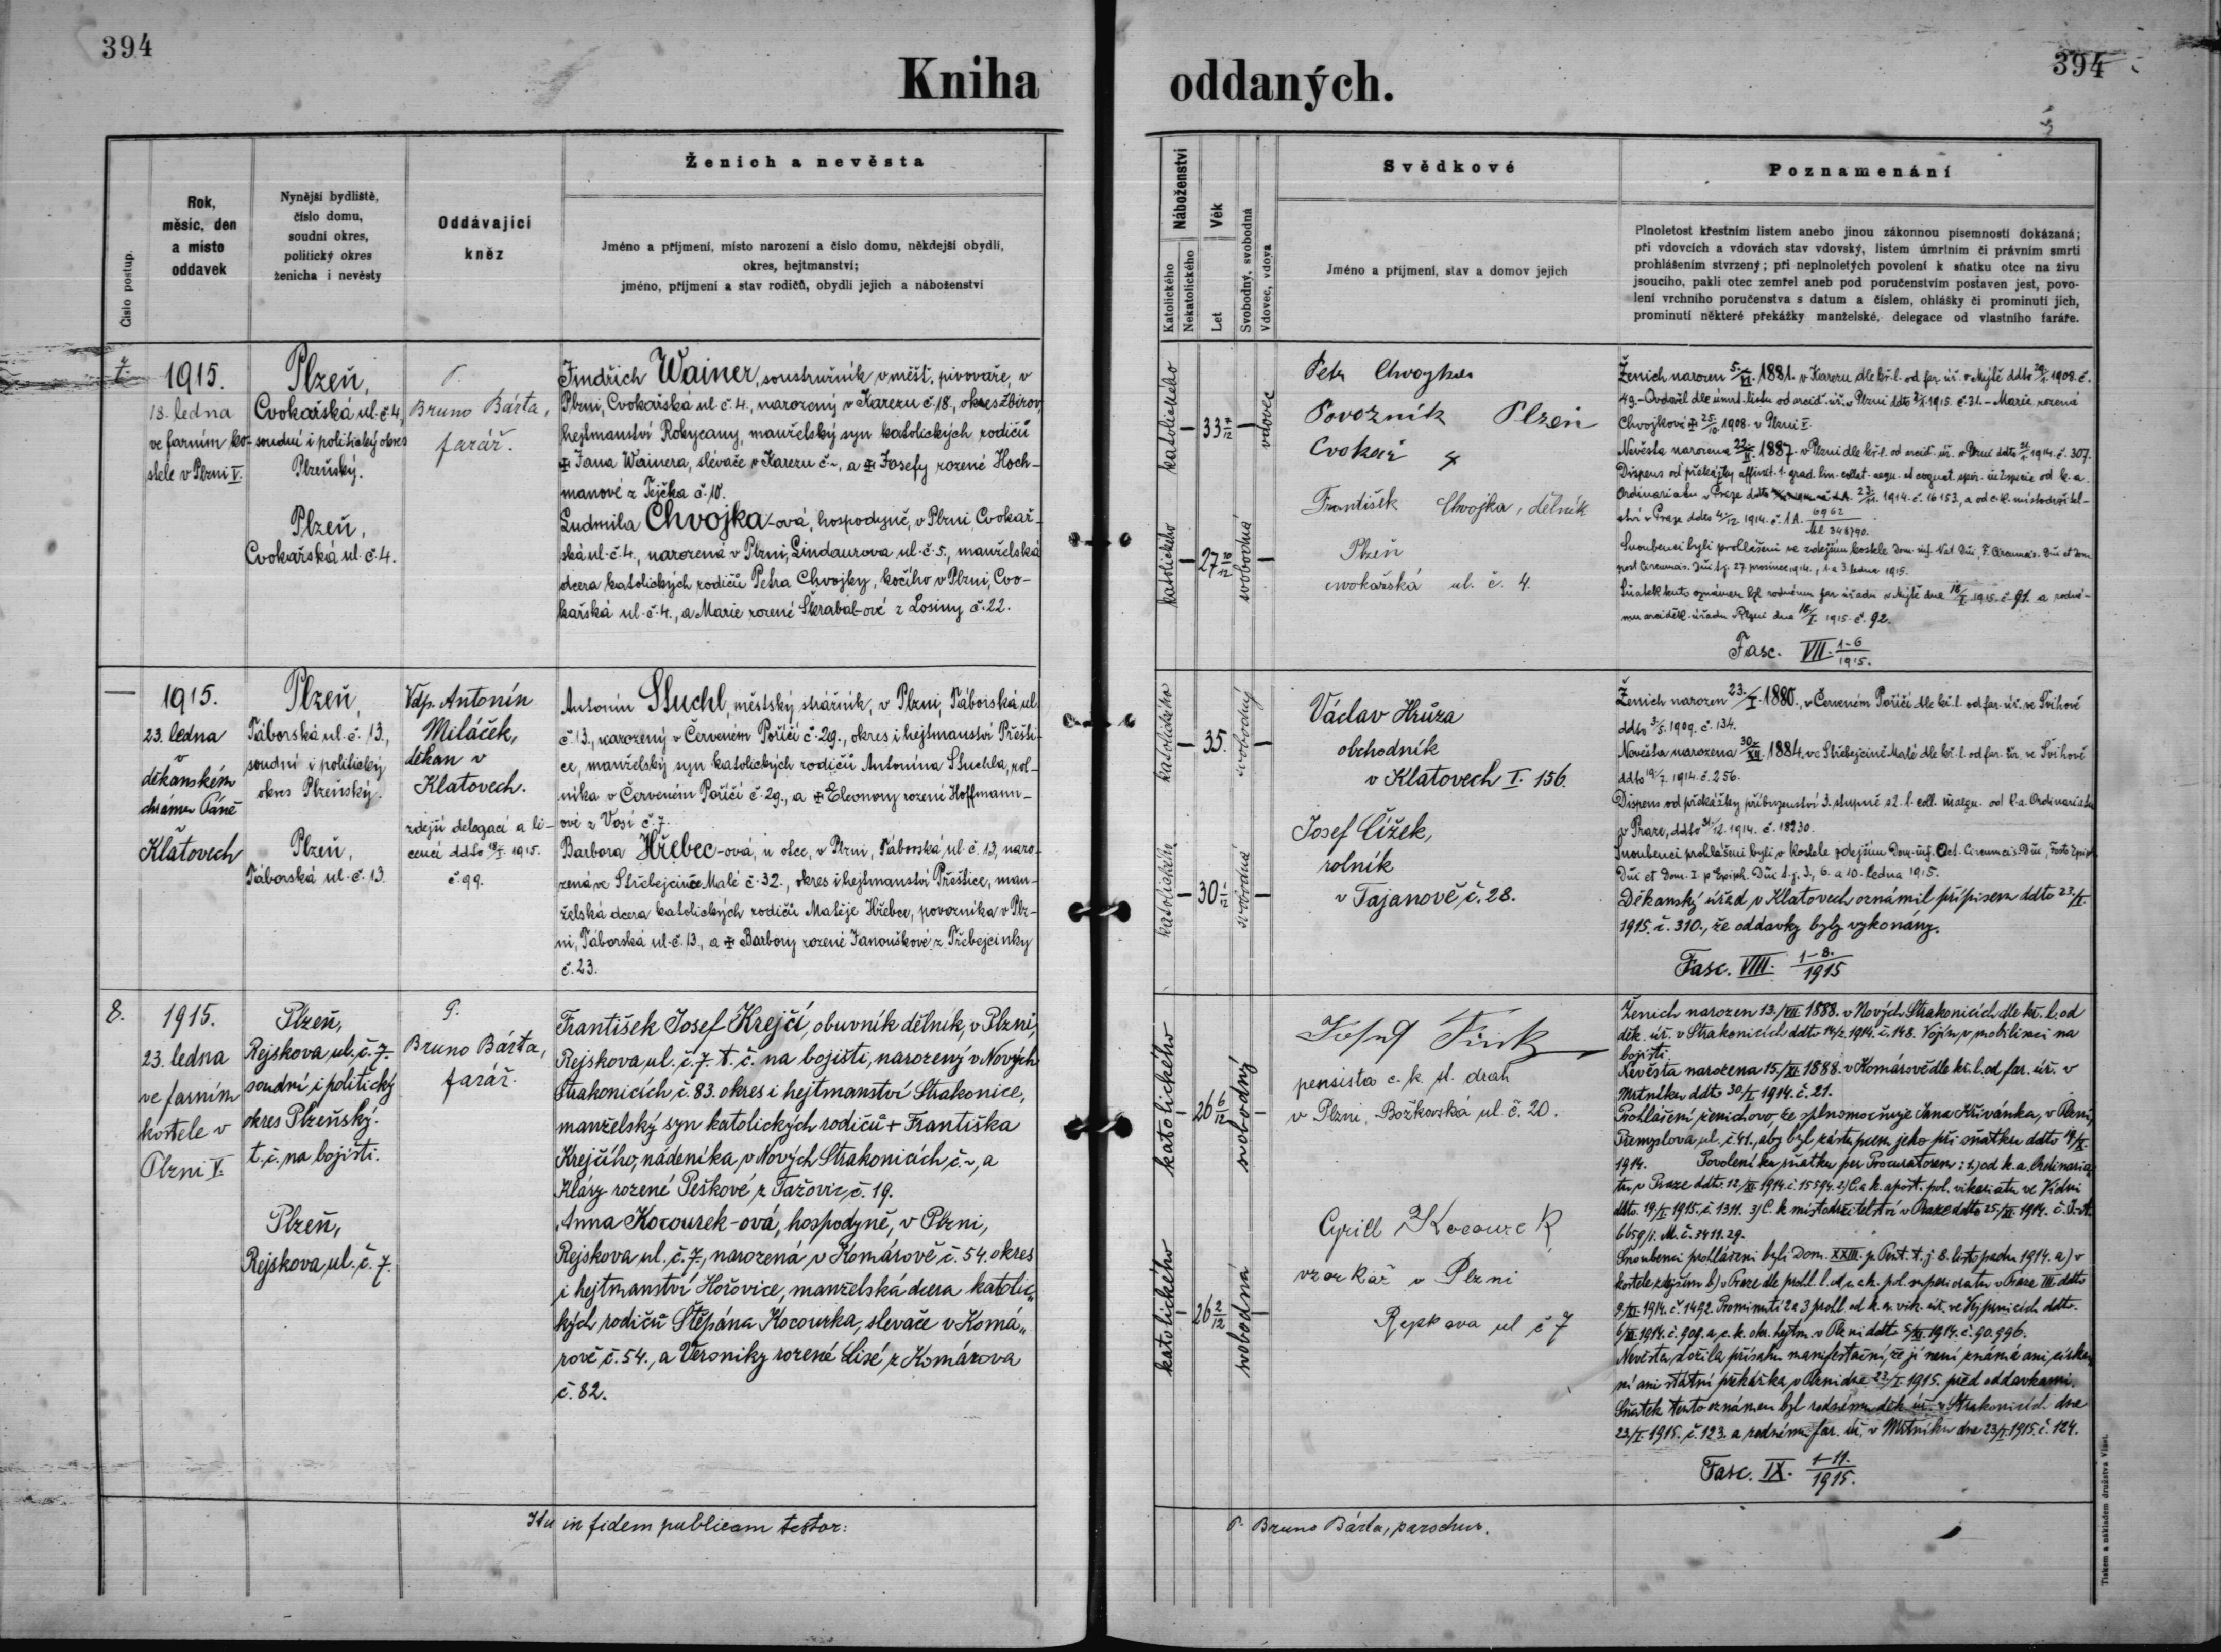 394
Kniha
oddaných.
394
Číslo postup.
Rok,
měsíc, den
a místo
oddavek
Nynější bydliště,
číslo domu,
soudní okres,
politický okres
ženicha i nevěsty
Oddávající
kněz
Ženich a nevěsta
Jméno a příjmení, místo narození a číslo domu, někdejší obydlí,
okres, hejtmanství;
jméno, příjmení a stav rodičů, obydlí jejich a náboženství
Náboženství
Katolického
Nekatolického
Věk
Let
Svobodný, svobodná
Vdovec, vdova
Svědkové
Jméno a příjmení, stav a domov jejich
Poznamenání
Plnoletost křestním listem anebo jinou zákonnou písemností dokázaná;
při vdovcích a vdovách stav vdovský, listem úmrtním či právním smrti
prohlášením stvrzený; při neplnoletých povolení k sňatku otce na živu
jsoucího, pakli otec zemřel aneb pod poručenstvím postaven jest, povo-
lení vrchního poručenstva s datum a číslem, ohlášky či prominutí jich,
prominutí některé překážky manželské, delegace od vlastního faráře.
7.
1915.
18. ledna
ve farním ko-
stele v Plzni V.
Plzeň,
Cvokařská ul. č. 4,
soudní i politický okres
Plzeňský.
Plzeň,
Cvokařská ul. č. 4.
P.
Bruno Bárta,
farář.
Jindřich Wainer, soustružník v měšt. pivovaře, v
Plzni, Cvokařská ul č. 4., narozený v Karezu č. 18., okres Zbirov,
hejtmanství Rokycany, manželský syn katolických rodičů
Jana Wainera, slévače v Karezu č. ~, a Josefy rozené Hoch-
manové z Tejčka č. 10.
Ludmila Chvojka-ová, hospodyně, v Plzni, Cvokař-
ská ul. č. 4., narozená v Plzni, Lindaurova ul. č. 5., manželská
dcera katolických rodičů Petra Chvojky, kočího v Plzni, Cvo-
kařská ul. č. 4., a Marie rozené Škrabal-ové z Losiny č. 22.
katolického
33 7/12
vdovec
katolického
27 10/12
svobodná
Petr Chvojka
Povozník Plzeň
Cvokař 4
František Chvojka, dělník
Plzeň
cvokařská ul. č. 4.
Ženich narozen 5/VI. 1881. v Karezu dle kř. l. od far. úř. v Mýtě ddto 1908. č.
49. - Ovdověl dle úmrt. listu od arciď. úř. v Plzni ddto 1915. č. 31. - Marie rozená
Chvojkové 25/10 1908. v Plzni V.
Nevěsta narozena 22/II. 1887. v Plzni dle kř. l. od arciď. úř. v Plzni ddto 1914. č. 307.
Ordinariatu v Praze ddto 1914. č. 16153, a od c. k. místodržitel-
ství v Praze ddto 1914. č. 1 A. 6962
348790.
Snoubenci byli prohlášeni ve zdejším kostele
27. prosince 1914., 1. a 3. ledna 1915.
Sňatek tento oznámen byl rodnému far. úřadu v Mýtě dne 18/I. 1915. č. 91. a rodné-
mu arciděk. úřadu v Plzni dne 18/I. 1915. č. 92.
Fasc. VII. 1-6/1915.
—
1915.
23. ledna
v
děkanském
chrámu Páně
v
Klatovech
Plzeň,
Táborská ul. č. 13.,
soudní i politický
okres Plzeňský.
Plzeň,
Táborská ul. č. 13.
Vdp. Antonín
Miláček,
děkan v
Klatovech.
zdejší delegací a li-
cencí ddto 18/I. 1915.
č. 99.
Antonín Stuchl, městský strážník, v Plzni, Táborská ul.
č. 13., narozený v Červeném Poříčí č. 29., okres i hejtmanství Přešti-
ce, manželský syn katolických rodičů Antonína Stuchla, rol-
níka v Červeném Poříčí č. 29., a Eleonory rozené Hoffmann-
ové z Vosí č. 7.
Barbora Hřebec-ová, u otce, v Plzni, Táborská ul č. 13, naro-
zená ve Střebejčině Malé č. 32., okres i hejtmanství Přeštice, man-
želská dcera katolických rodičů Matěje Hřebce, povozníka v Plz-
ni, Táborská ul. č. 13., a Barbory rozené Janouškové z Přebejčinky
č. 23.
katolického
35.
svobodný
katolického
30 1/12
svobodná
Václav Hrůza
obchodník
v Klatovech I. 156.
Josef Čížek,
rolník
v Tajanově č. 28.
Ženich narozen 23./I. 1880., v Červeném Poříčí dle kř. l. od far. úř. ve Švihově
ddto 3/5. 1909. č. 134.
Nevěsta narozena 30/XII. 1884. ve Střebejčině Malé dle kř. l. od far. úř. ve Švihově
ddto 1914. č. 256.
Dispens od překážky příbuzenství 3. stupně od k. a. Ordinariatu
v Praze, ddto 31/12. 1914. č. 18230.
Snoubenci prohlášeni byli v kostele zdejším
t. j. 3., 6. a 10. ledna 1915.
Děkanský úřad v Klatovech oznámil přípisem ddto 23./I.
1915. č. 310., že oddavky byly vykonány.
Fasc. VIII. 1-8./1915
8.
1915.
23. ledna
ve farním
kostele v
Plzni V.
Plzeň,
Rejskova ul. č. 7.
soudní i politický
okres Plzeňský.
t. č. na bojišti.
Plzeň,
Rejskova ul. č. 7.
P.
Bruno Bárta,
farář.
František Josef Krejčí, obuvník dělník, v Plzni,
Rejskova ul. č. 7. t. č. na bojišti, narozený v Nových
Strakonicích č. 83. okres i hejtmanství Strakonice,
manželský syn katolických rodičů + Františka
Krejčího, nádeníka v Nových Strakonicích č. ~, a
Kláry rozené Peškové z Tažovic č. 19.
Anna Kocourek-ová, hospodyně, v Plzni,
Rejskova ul. č. 7, narozená v Komárově č. 54. okres
i hejtmanství Hořovice, manželská dcera katolic„
kých rodičů Štěpána Kocourka, slevače v Komá„
rově č. 54., a Veroniky rozené Lisé z Komárova
č. 82.
katolického
26 6/12
svobodný
katolického
26 2/12
svobodná
Josef
pensista c. k. st. drah
v Plzni, Božkovská ul. č. 20.
Cyrill Kocourek
vzorkař v Plzni
Rejskova ul č 7
Ženich narozen 13./VII. 1888. v Nových Strakonicích dle kř. l. od
děk. úř. v Strakonicích ddto 1914. č. 148. Vojín v mobilisaci na
bojišti.
Nevěsta narozena 15/XI. 1888. v Komárově dle kř. l. od far. úř. v
Mrtníku ddto 30/X. 1914. č. 21.
Prohlášení ženichovo, že splnomocňuje Jana Křivánka, v Plzni,
Přemyslova ul. č. 41., aby byl zástupcem jeho při sňatku ddto
1914. Povolení ku sňatku per Procuratorem: 1.) od k. a. Ordinaria-
tu v Praze ddto 12/XI. 1914. č. 15594. 2) C. a k. apošt. pol. vikariatu ve Vídni
ddto. 19/I. 1915. č. 1311. 3) C. k místodržitelství v Praze ddto 25/XI. 1914. č.
6659/1. M. č. 3411.29.
Snoubenci prohlášeni byli Dom. XXIII. p. Pent. t. j 8. listopadu 1914. a) v
kostele zdejším b) v Praze dle prohl. l. od c. a k. pol. superioratu v Praze III. ddto
9/XI. 1914. č. 1492. Prominutí 2 a 3 prohl. od k. a. vik. úř. ve Vejprnicích ddto.
6/XI. 1914. č. 909. a c. k. okr. hejtm. v Plzni ddto 5/XI. 1914. č. 90.996.
Nevěsta složila přísahu manifestační, že jí není známá ani církev-
ní ani státní překážka, v Plzni dne 23/I. 1915. před oddavkami.
Sňatek tento oznámen byl rodnému děk. úř. v Strakonicích dne
23/I. 1915. č. 123. a rodnému far. úř. v Mrtníku dne 23/I. 1915. č. 124.
Fasc. IX. 1-11./1915.
Ita in fidem publicam testor:
P. Bruno Bárta, parochus.
Tiskem a nákladem družstva Vlasť.